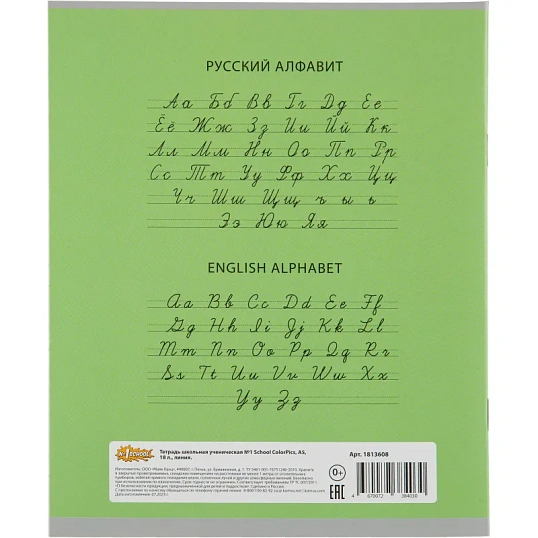 РУССКИЙ АЛФАВИТ
Аа Бб Вв Гг Дд Ее
Ёё Жж Зз Ии Йй Кк
Лл Мм Нн Оо Пп Рр
Сс Тт Уу Фф Хх Цц
Чч Шш Щщ ъ ы ь
Ээ Юю Яя
ENGLISH ALPHABET
Aa Bb Cc Dd Ee Ff
Gg Hh Ii Jj Kk Ll
Mm Nn Oo Pp Qq Rr
Ss Tt Uu Vv Ww Xx
Yy Zz
№1 SCHOOL
Тетрадь школьная ученическая №1 School ColorPics, А5,
18 л., линия.
Арт. 1813608
0+
EAC
4 670072 384030